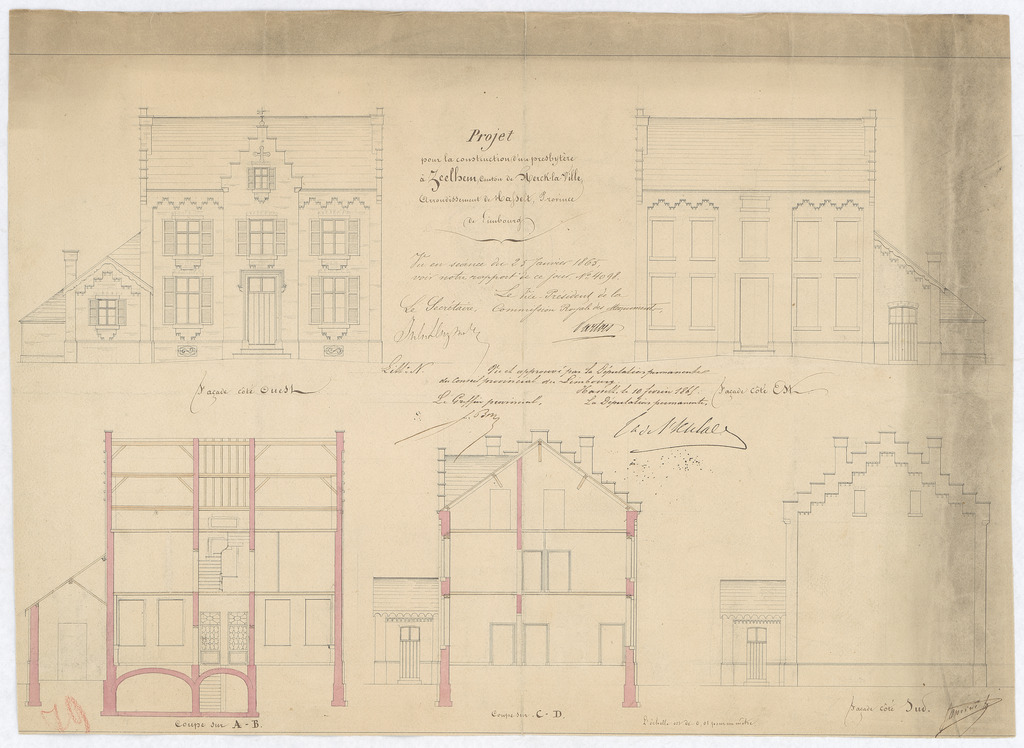 Projet
pour la construction d'un presbytère
à Zeelhem, Canton de Herck-la-Ville,
Arrondissement de Hasselt, Province
de Limbourg
Vu en séance du 25 Janvier 1865,
voir notre rapport de ce jour, Nº 4098.
Le Vice-Président de la
Le Secrétaire, Commission Royale des Monuments,
Litt. N
Vu et approuvé par la Députation permanente
du Conseil provincial du Limbourg
Hasselt, le 10 février 1865.
Le Greffier provincial, La Députation permanente,
Façade côté Ouest
Façade côté Est
Coupe sur A - B.
Coupe sur C - D.
Façade côté Sud.
L'échelle est de 0,01 pour un mètre
79